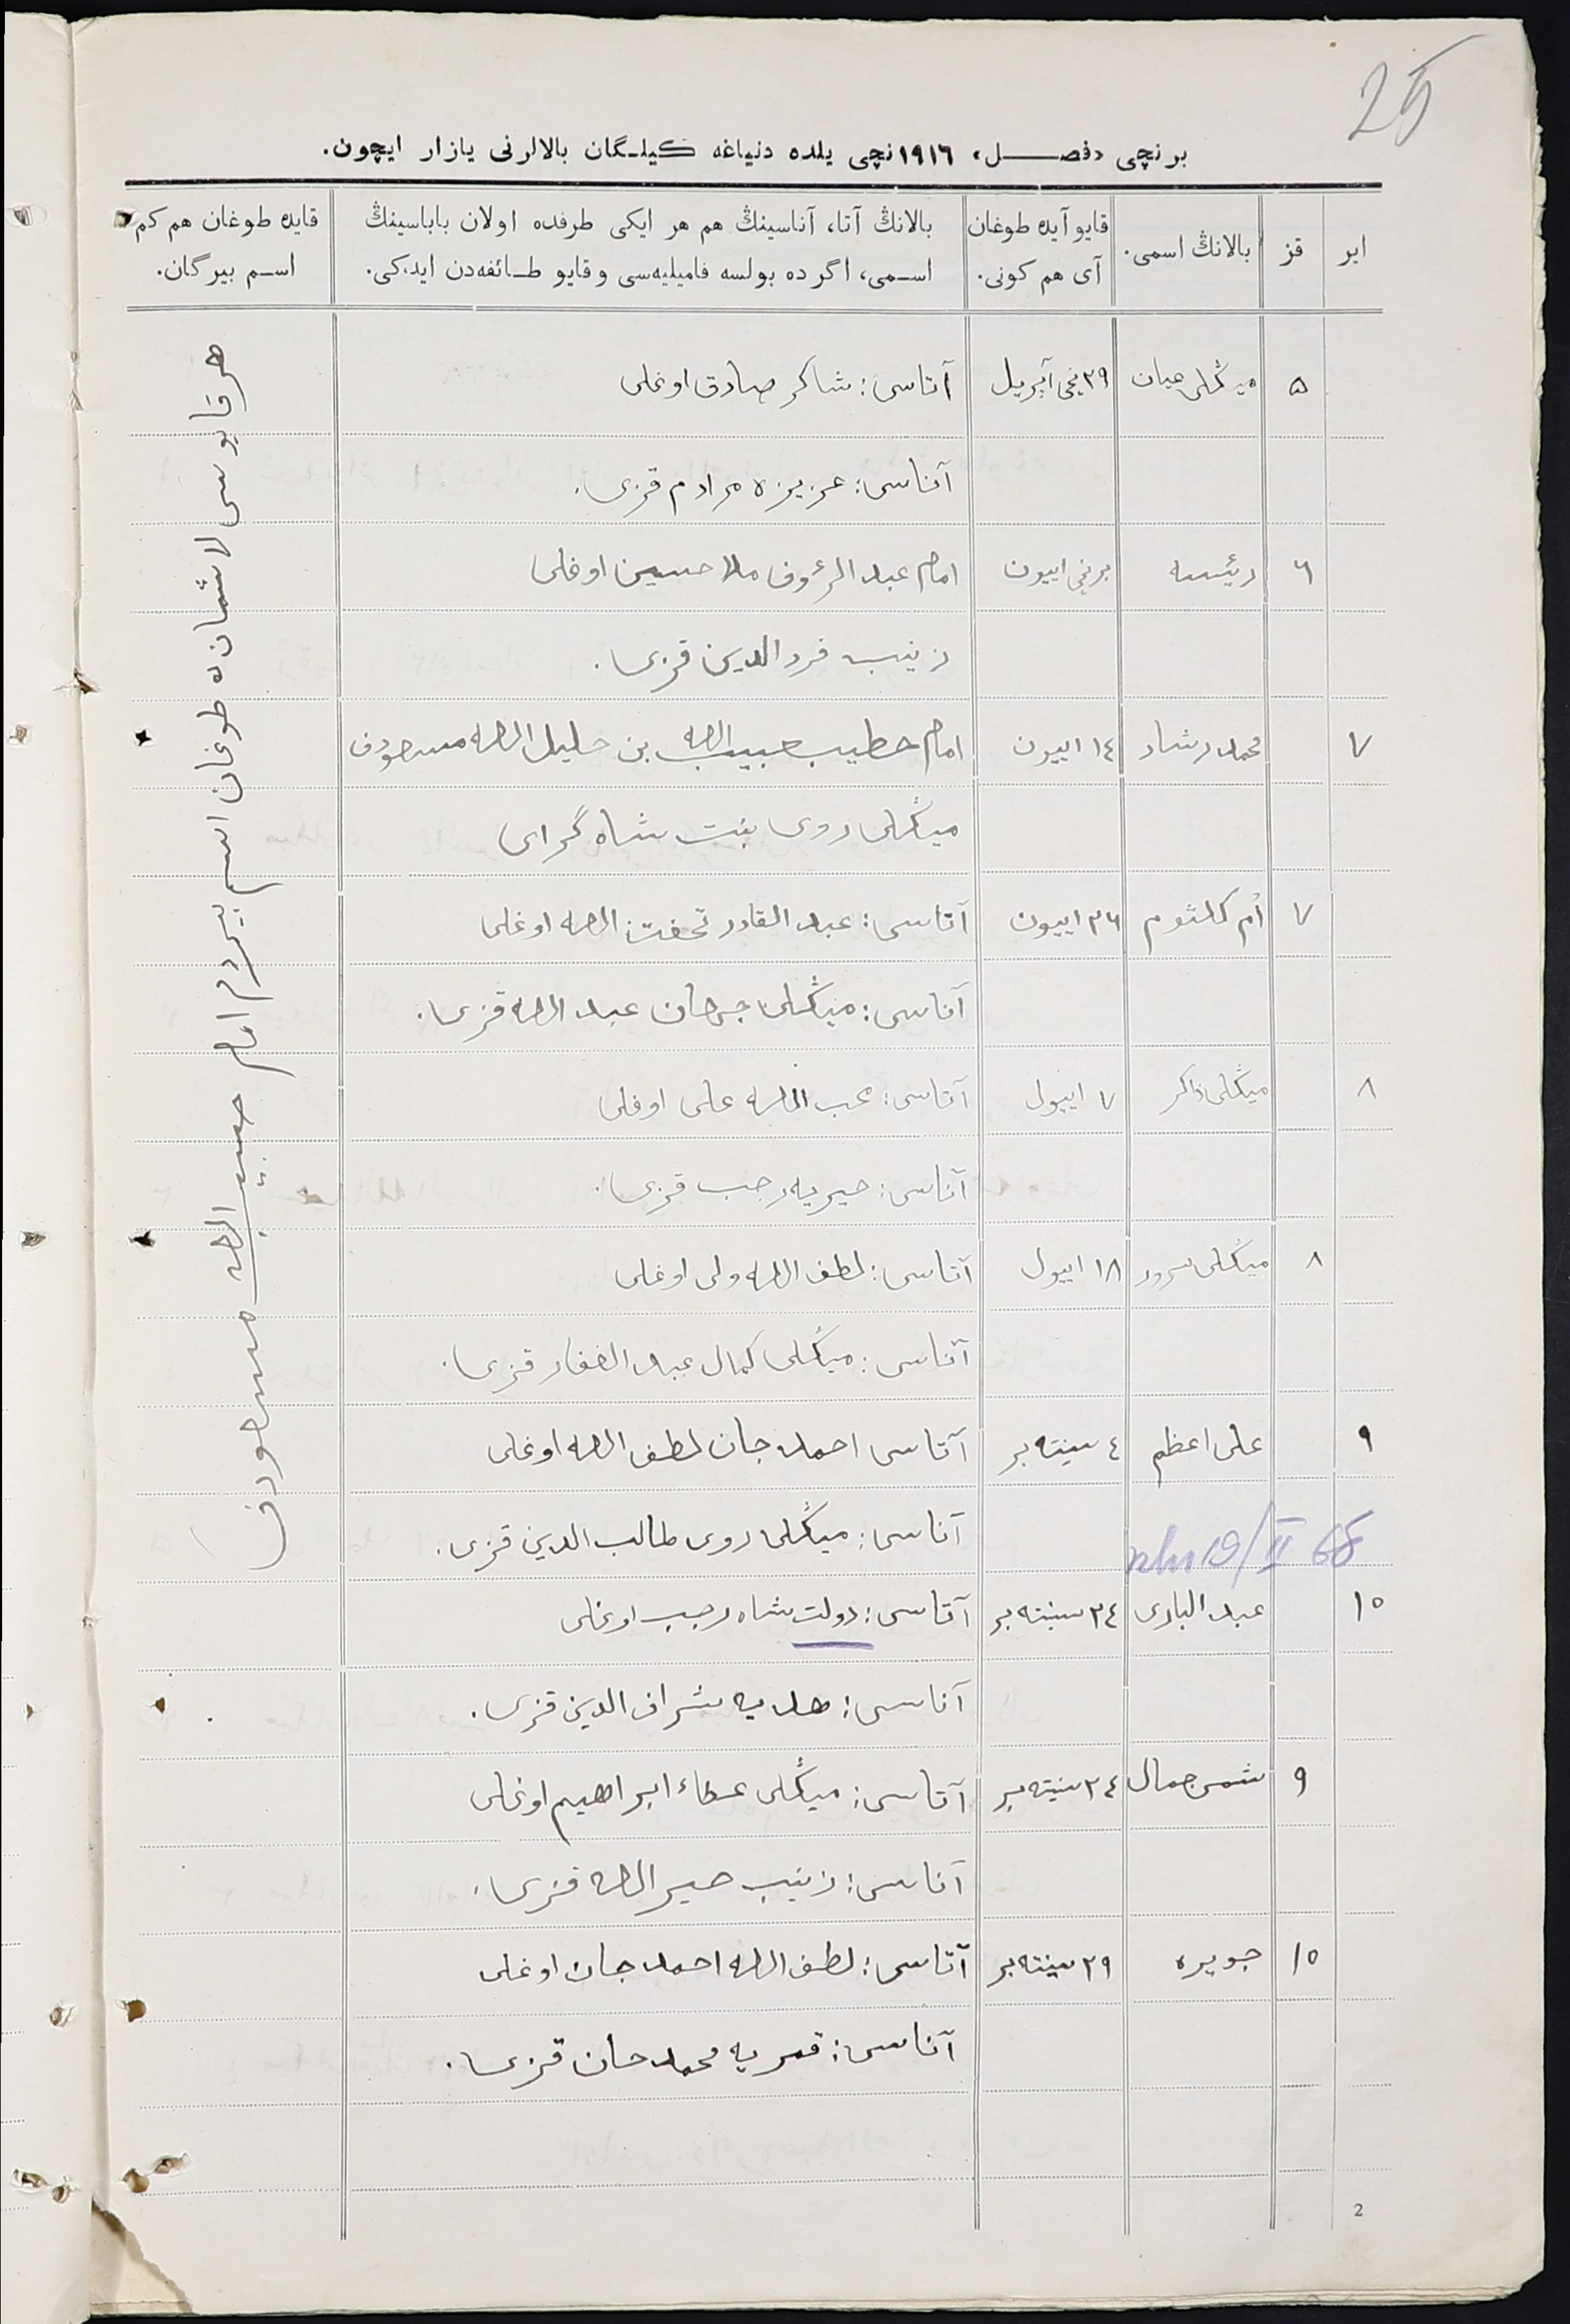 25
برنچی «فصل» ١٩١٦نچی يلده دنياغه كيلگان بالالرنی يازار ايچون.
اير
قز
بالانڭ اسمی.
قايو آيده طوغان
آی هم كونی.
بالانڭ آتا، آناسينڭ هم هر ايكی طرفده اولان باباسينڭ
اسمی، اگرده بولسه فاميليه‌سی و قايو طائفه‌دن ايدكی.
قايده طوغان هم كم
اسم بيرگان.
٥ ميڭلی عيان ٢٩نچی آپريل آتاسی: شاكر صادق اوغلی
آناسی: عزيزه مرادم قزی.
٦ رئيسه برنچی اييون امام عبد الرؤوف ملا حسين اوغلی
زينب فرد الدين قزی.
٧ محمد رشاد ١٤ اييون امام خطيب حبيب الله بن خليل الله مسعودف
ميڭلی روی بنت شاه گرای
٧ أم كلثوم ٢٦ اييون آتاسی: عبد القادر تحفة الله اوغلی
آناسی: ميڭلی جهان عبد الله قزی.
٨ ميڭلی ذاكر ٧ اييول آتاسی: محب الله علی اوغلی
آناسی: خيريه رجب قزی.
٨ ميڭلی سرور ١٨ اييول آتاسی: لطف الله ولی اوغلی
آناسی: ميڭلی كمال عبد الغفار قزی.
٩ علی اعظم ٤ سينته‌بر آتاسی احمد جان لطف الله اوغلی
آناسی: ميڭلی روی طالب الدين قزی.
19/II 68
١٠ عبد الباری ٢٤ سينته‌بر آتاسی: دولت شاه رجب اوغلی
آناسی: هديه شراف الدين قزی.
٩ شمس جمال ٢٤ سينته‌بر آتاسی: ميڭلی عطاء ابراهيم اوغلی
آناسی: زينب خير الله قزی.
١٠ جويره ٢٩ سينته‌بر آتاسی: لطف الله احمد جان اوغلی
آناسی: قمريه محمد جان قزی.
هر قايوسی لاشمانده طوغان اسم بيردم امام حبيب الله مسعودف
2